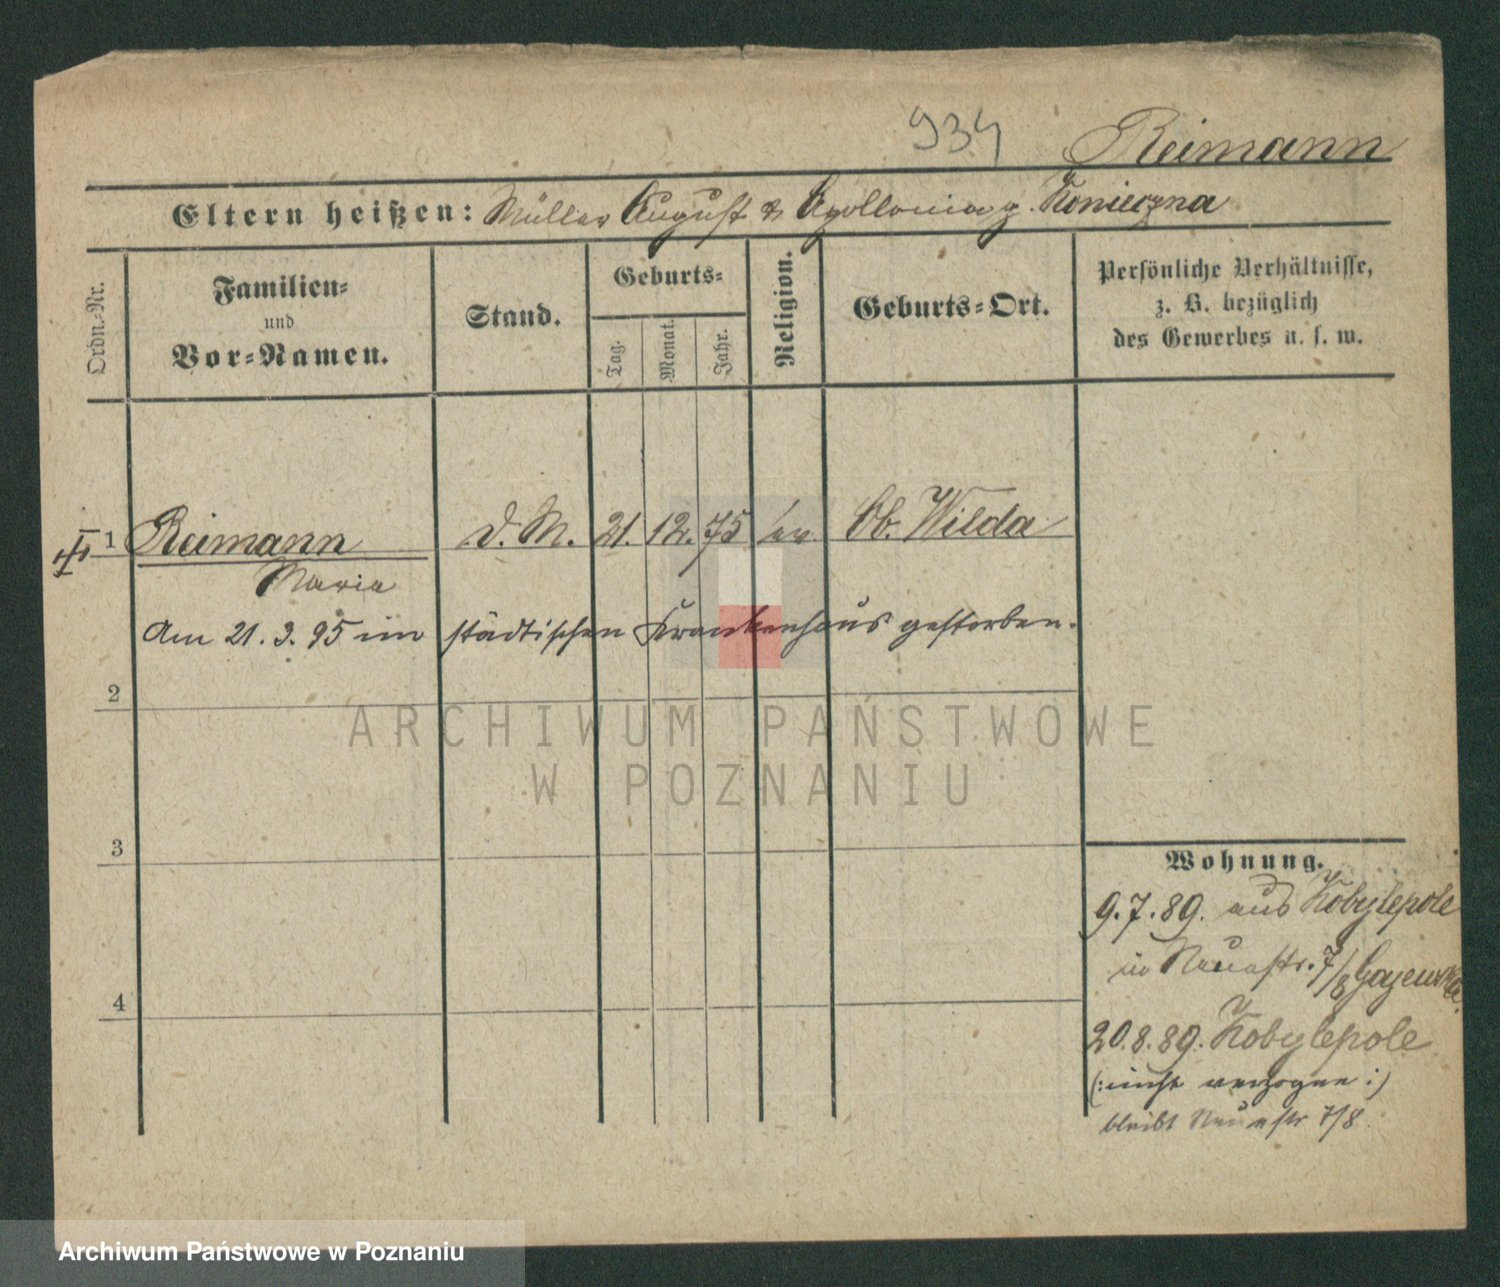 934
Reimann
Eltern heißen: Müller August & Apollonia g. Konieczna
Ordn.-Nr.
Familien-
und
Vor-Namen.
Stand.
Geburts-
Tag.
Monat.
Jahr.
Religion.
Geburts-Ort.
Persönliche Verhältnisse,
z. B. bezüglich
des Gewerbes u. s. w.
1 Reimann d. M. 21. 12. 75 ev. Ob. Wilda
Maria
Am 21. 3. 95 im städtischen Krankenhaus gestorben.
2
3
4
Wohnung.
9.7.89. aus Kobylepole
in Neuestr. 7/8 Gajewska.
20.8.89. Kobylepole
(: nicht verzogen :)
bleibt Neuestr 7/8
ARCHIWUM PAŃSTWOWE
W POZNANIU
Archiwum Państwowe w Poznaniu